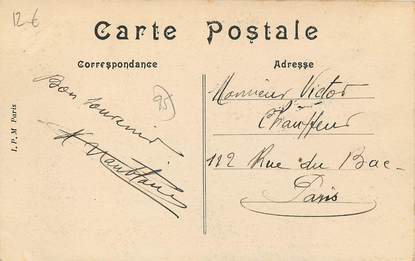 12 €
Carte Postale
Correspondance
Adresse
Bon souvenir
95
Monsieur Victor
Chauffeur
112 Rue du Bac
Paris
I. P. M Paris